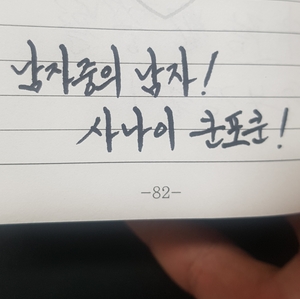 남자중의 남자!
사나이 쿤포쿤!
-82-